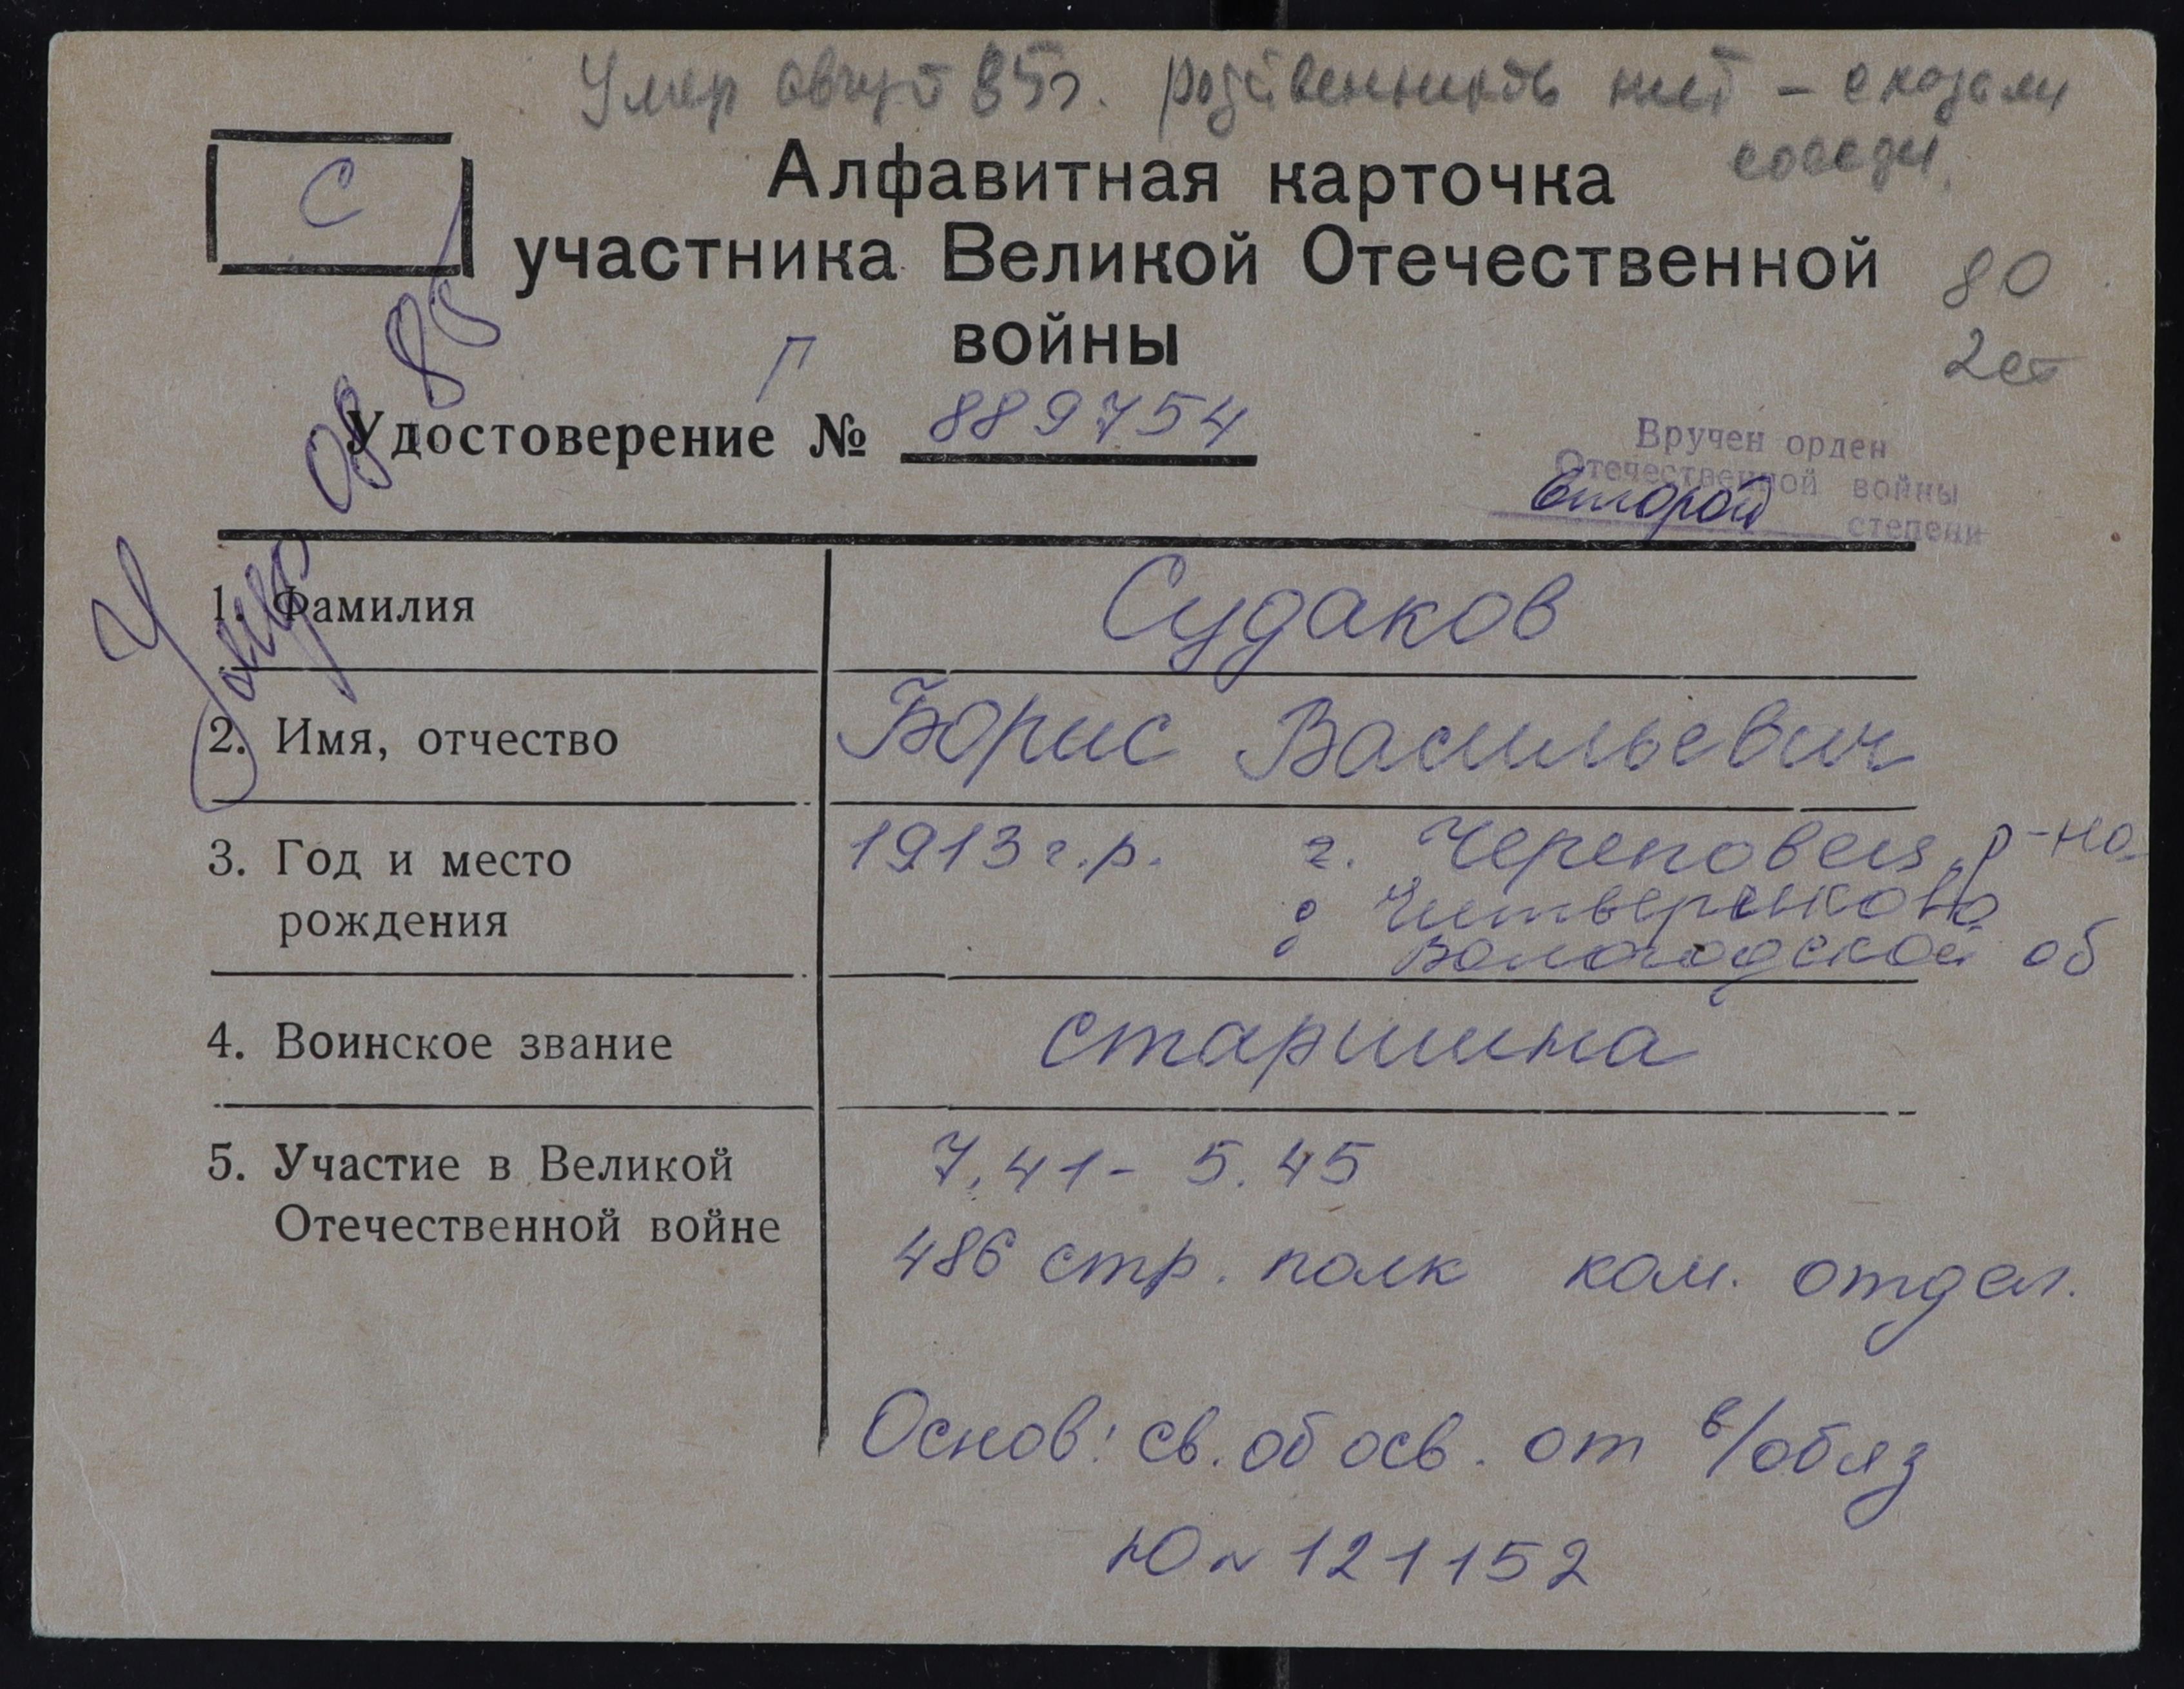 Умер август 85г. родственников нет – сказали
соседи.
С
Алфавитная карточка
участника Великой Отечественной
войны
80
2 ст
Г
Удостоверение № 889754
Вручен орден
Отечественной войны
второй степени
Умер 08 85
1. Фамилия Судаков
2. Имя, отчество Борис Васильевич
3. Год и место 1913 г.р. г. Череповец, р-на
рождения д Читверикова
Вологодской об
4. Воинское звание старшина
5. Участие в Великой 7.41 - 5.45
Отечественной войне 486 стр. полк ком. отдел.
Основ: св. об осв. от в/обяз
Ю № 121152